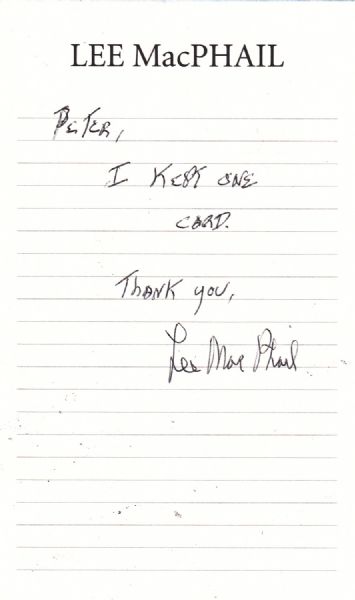 LEE MacPHAIL
PETER,
I KEPT ONE
CARD.
THANK YOU,
Lee MacPhail